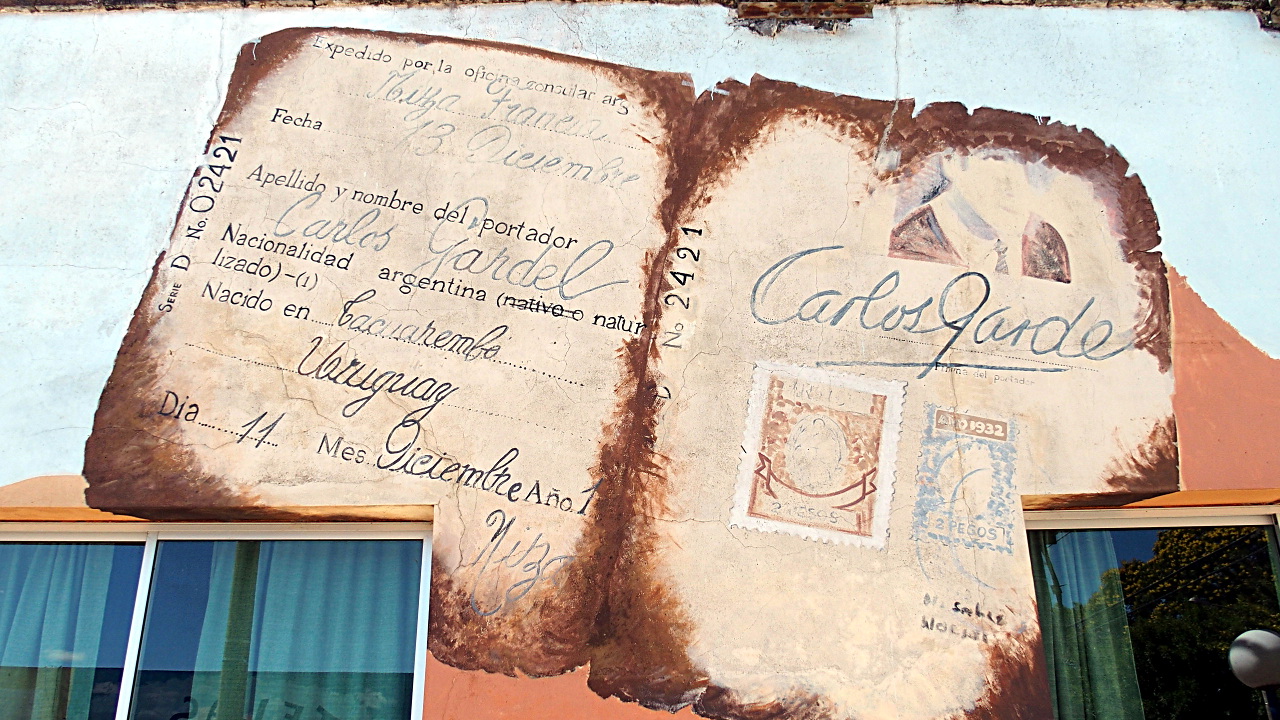 Expedido por la oficina consular arg
Niza Francia
Fecha 13 Diciembre
Apellido y nombre del portador
Carlos Gardel
Nacionalidad argentina (nativo o natur
lizado)-(1)
Nacido en Tacuarembó
Uruguay
Dia 11 Mes Diciembre Año 1
Niza
SERIE D No. 02421
No 2421
Carlos Garde
Firma del portador
2 PESOS
AÑO 1932
2 PESOS